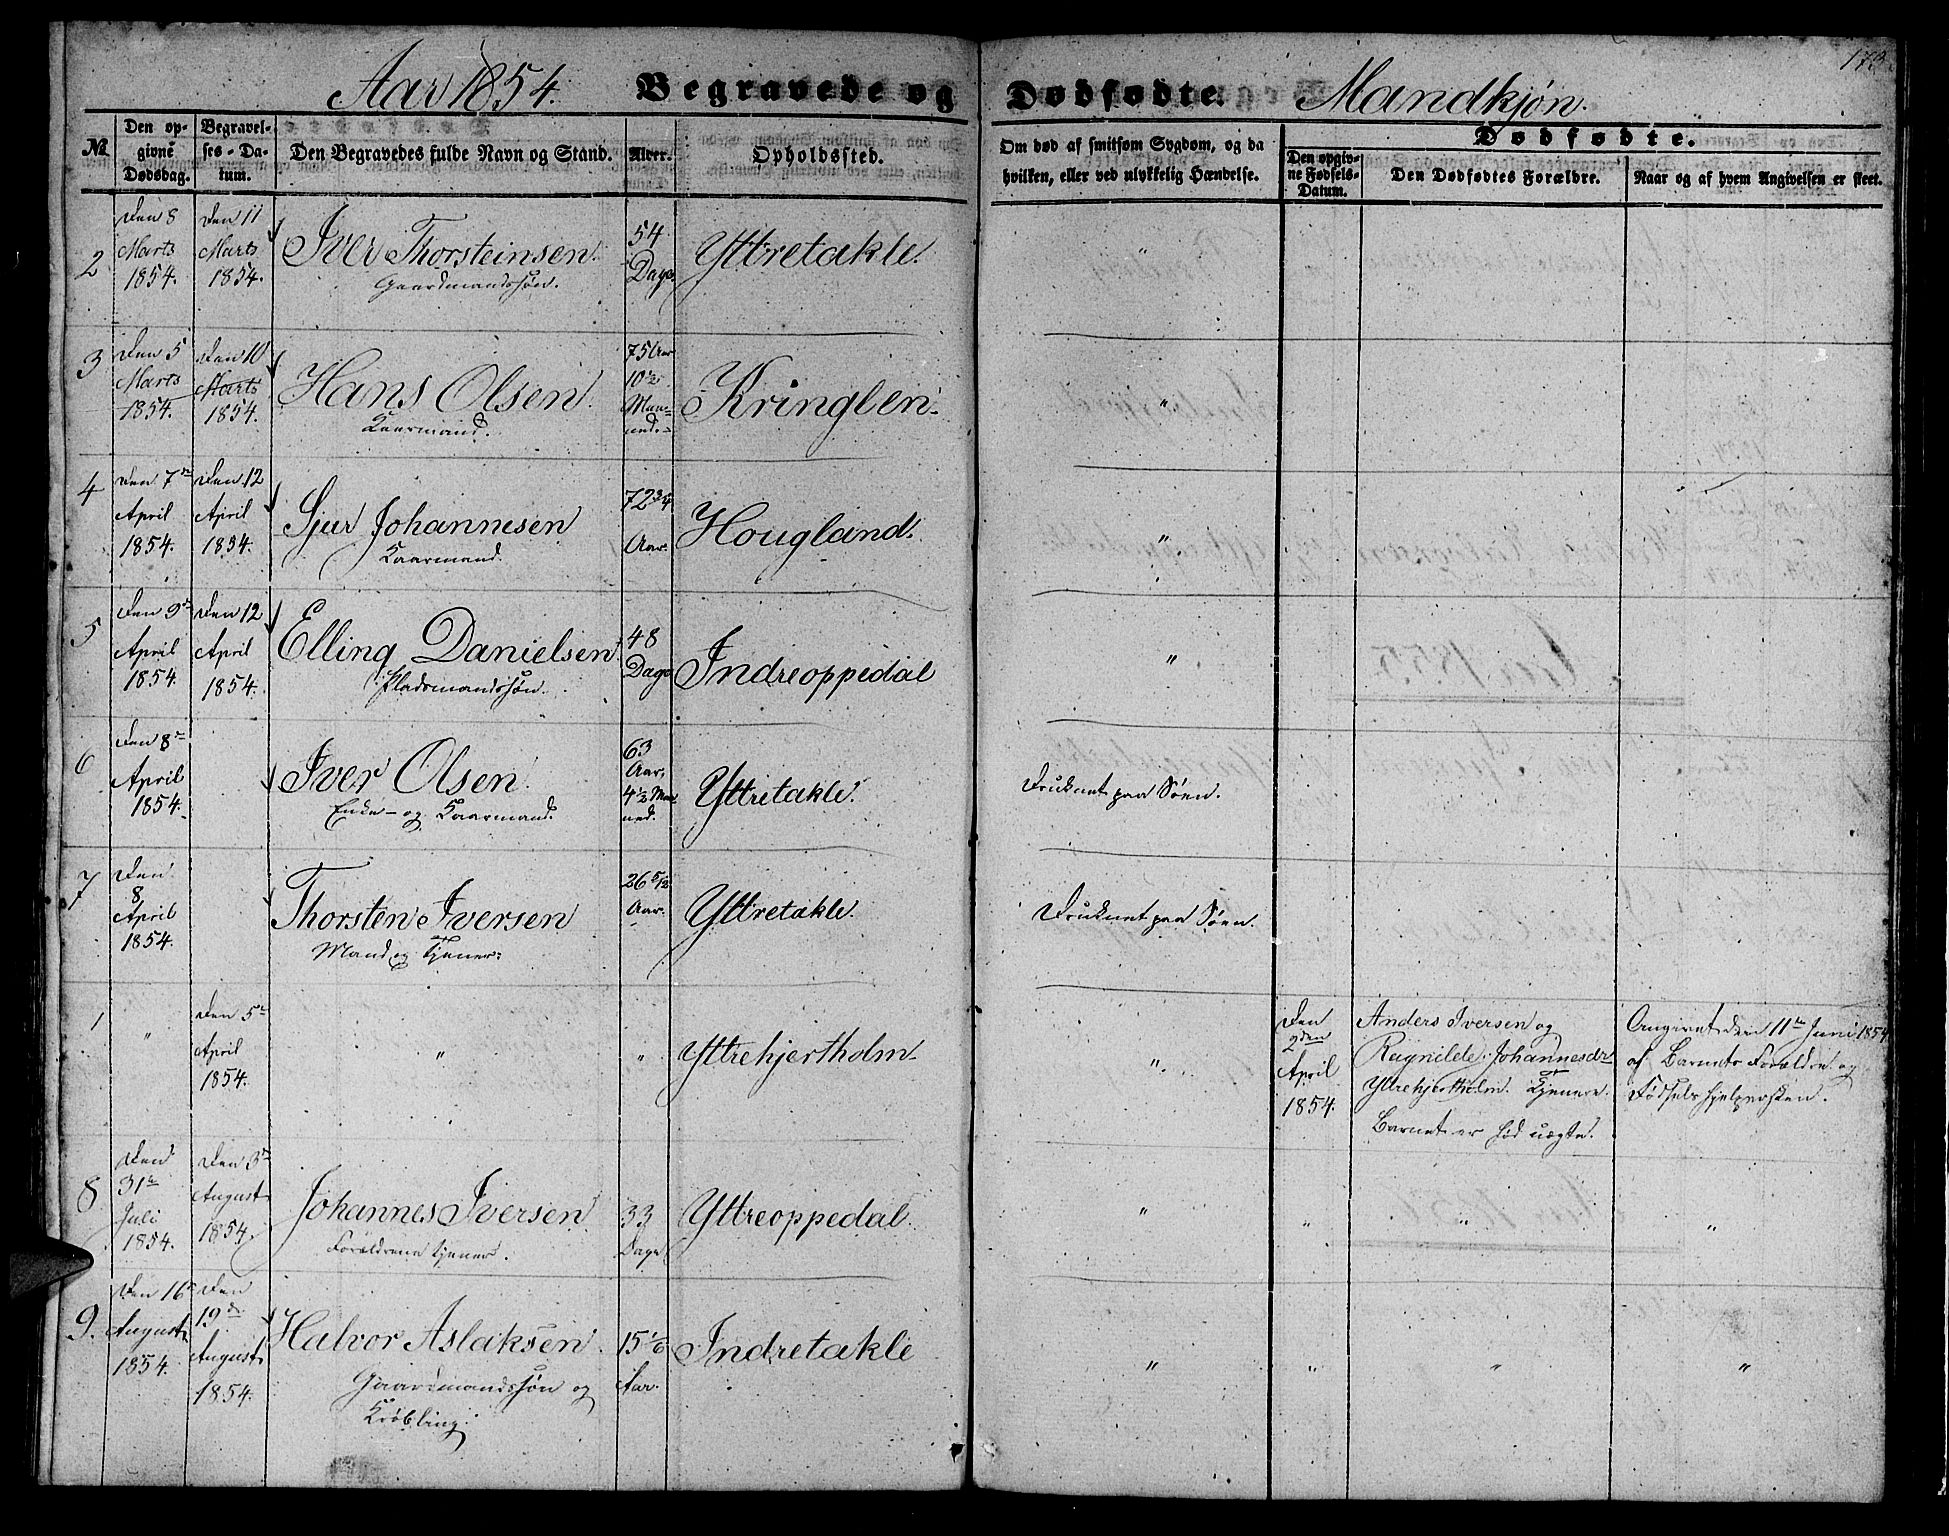 173.
Aar 1854. Begravede og Dødfødte. Mandkjøn.
No.
Den opgivne Dødsdag.
Begravelses-Datum.
Den Begravedes fulde Navn og Stand.
Alder.
Opholdssted.
Om død af smitsom Sygdom, og da hvilken, eller ved ulykkelig Hændelse.
Dødfødte.
Den opgivne Fødsels-Datum.
Den Dødfødtes Forældre.
Naar og af hvem Angivelsen er skeet.
2
Den 8
Marts
1854.
Den 11
Marts
1854.
Iver Thorsteinsen.
Gaardmandssøn.
54
Dage
Yttretakle.
"
3
Den 5
Marts
1854.
Den 10
Marts
1854.
Hans Olsen.
Kaarmand.
75 Aar
10½
Maa-
neder
Kringlen.
"
4
Den 7de
April
1854.
Den 12
April
1854.
Sjur Johannesen
Kaarmand.
72¾
Aar.
Hougland.
"
5
Den 9de
April
1854.
Den 12
April
1854.
Elling Danielsen
Pladsmandssøn.
48
Dage
Indreoppedal
"
6
Den 8de
April
1854.
Iver Olsen.
Enke- og Kaarmand.
63
Aar,
4½ Maa-
ned.
Yttretakle.
Druknet paa Søen.
7
Den
8
April
1854.
Thorsten Iversen
Mand og Tjener.
26 5/12
Aar.
Yttretakle.
Druknet paa Søen.
1
"
Den 5te
April
1854.
"
"
Yttrehjertholm
"
Den
2den
April
1854.
Anders Iversen og
Ragnilde Johannesdr
Yttrehjertholm. Tjenere.
Barnet er født uægte.
Angivet den 11te Juni 1854
af Barnets Forældre og
Fødselshjelpersken.
8
Den
31te
Juli
1854.
Den 3de
August
1854.
Johannes Iversen
Forældrene tjener.
33
Dage
Yttreoppedal.
"
"
"
"
9.
Den 16de
August
1854.
Den
19de
August
1854.
Halvor Aslaksen.
Gaardmandssøn og
Krøbling.
15 1/6
Aar.
Indretakle
"
"
"
"